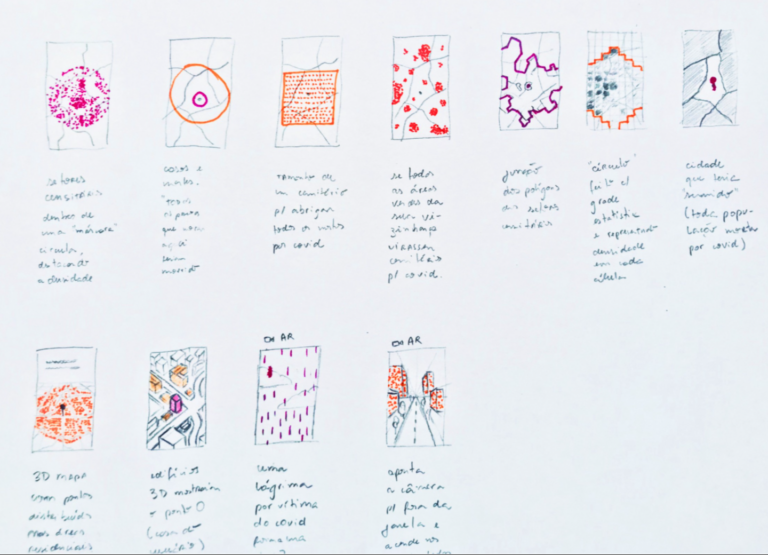 setores
censitários
dentro de
uma "máscara"
circular,
destacando
a densidade
casos e
mortes.
"todos
os pontos
que
aqui
teriam
morrido
tamanho de
um cemitério
p/ abrigar
todos os mortos
por covid
se todas
as áreas
verdes da
sua vi-
zinhança
virassem
cemitério
p/ covid.
junção
dos polígonos
dos setores
censitários
"círculo"
feito c/
grade
estatística
e representando
densidade
em cada
célula
cidade
que teria
"sumido"
(toda popu-
lação morta
por covid)
3D mapa
com pontos
distribuídos
nas áreas
residenciais
edifícios
3D mostrariam
o ponto 0
(casa do
usuário)
EM AR
uma
lágrima
por vítima
do covid
EM AR
aponta
a câmera
p/ fora da
janela e
acende